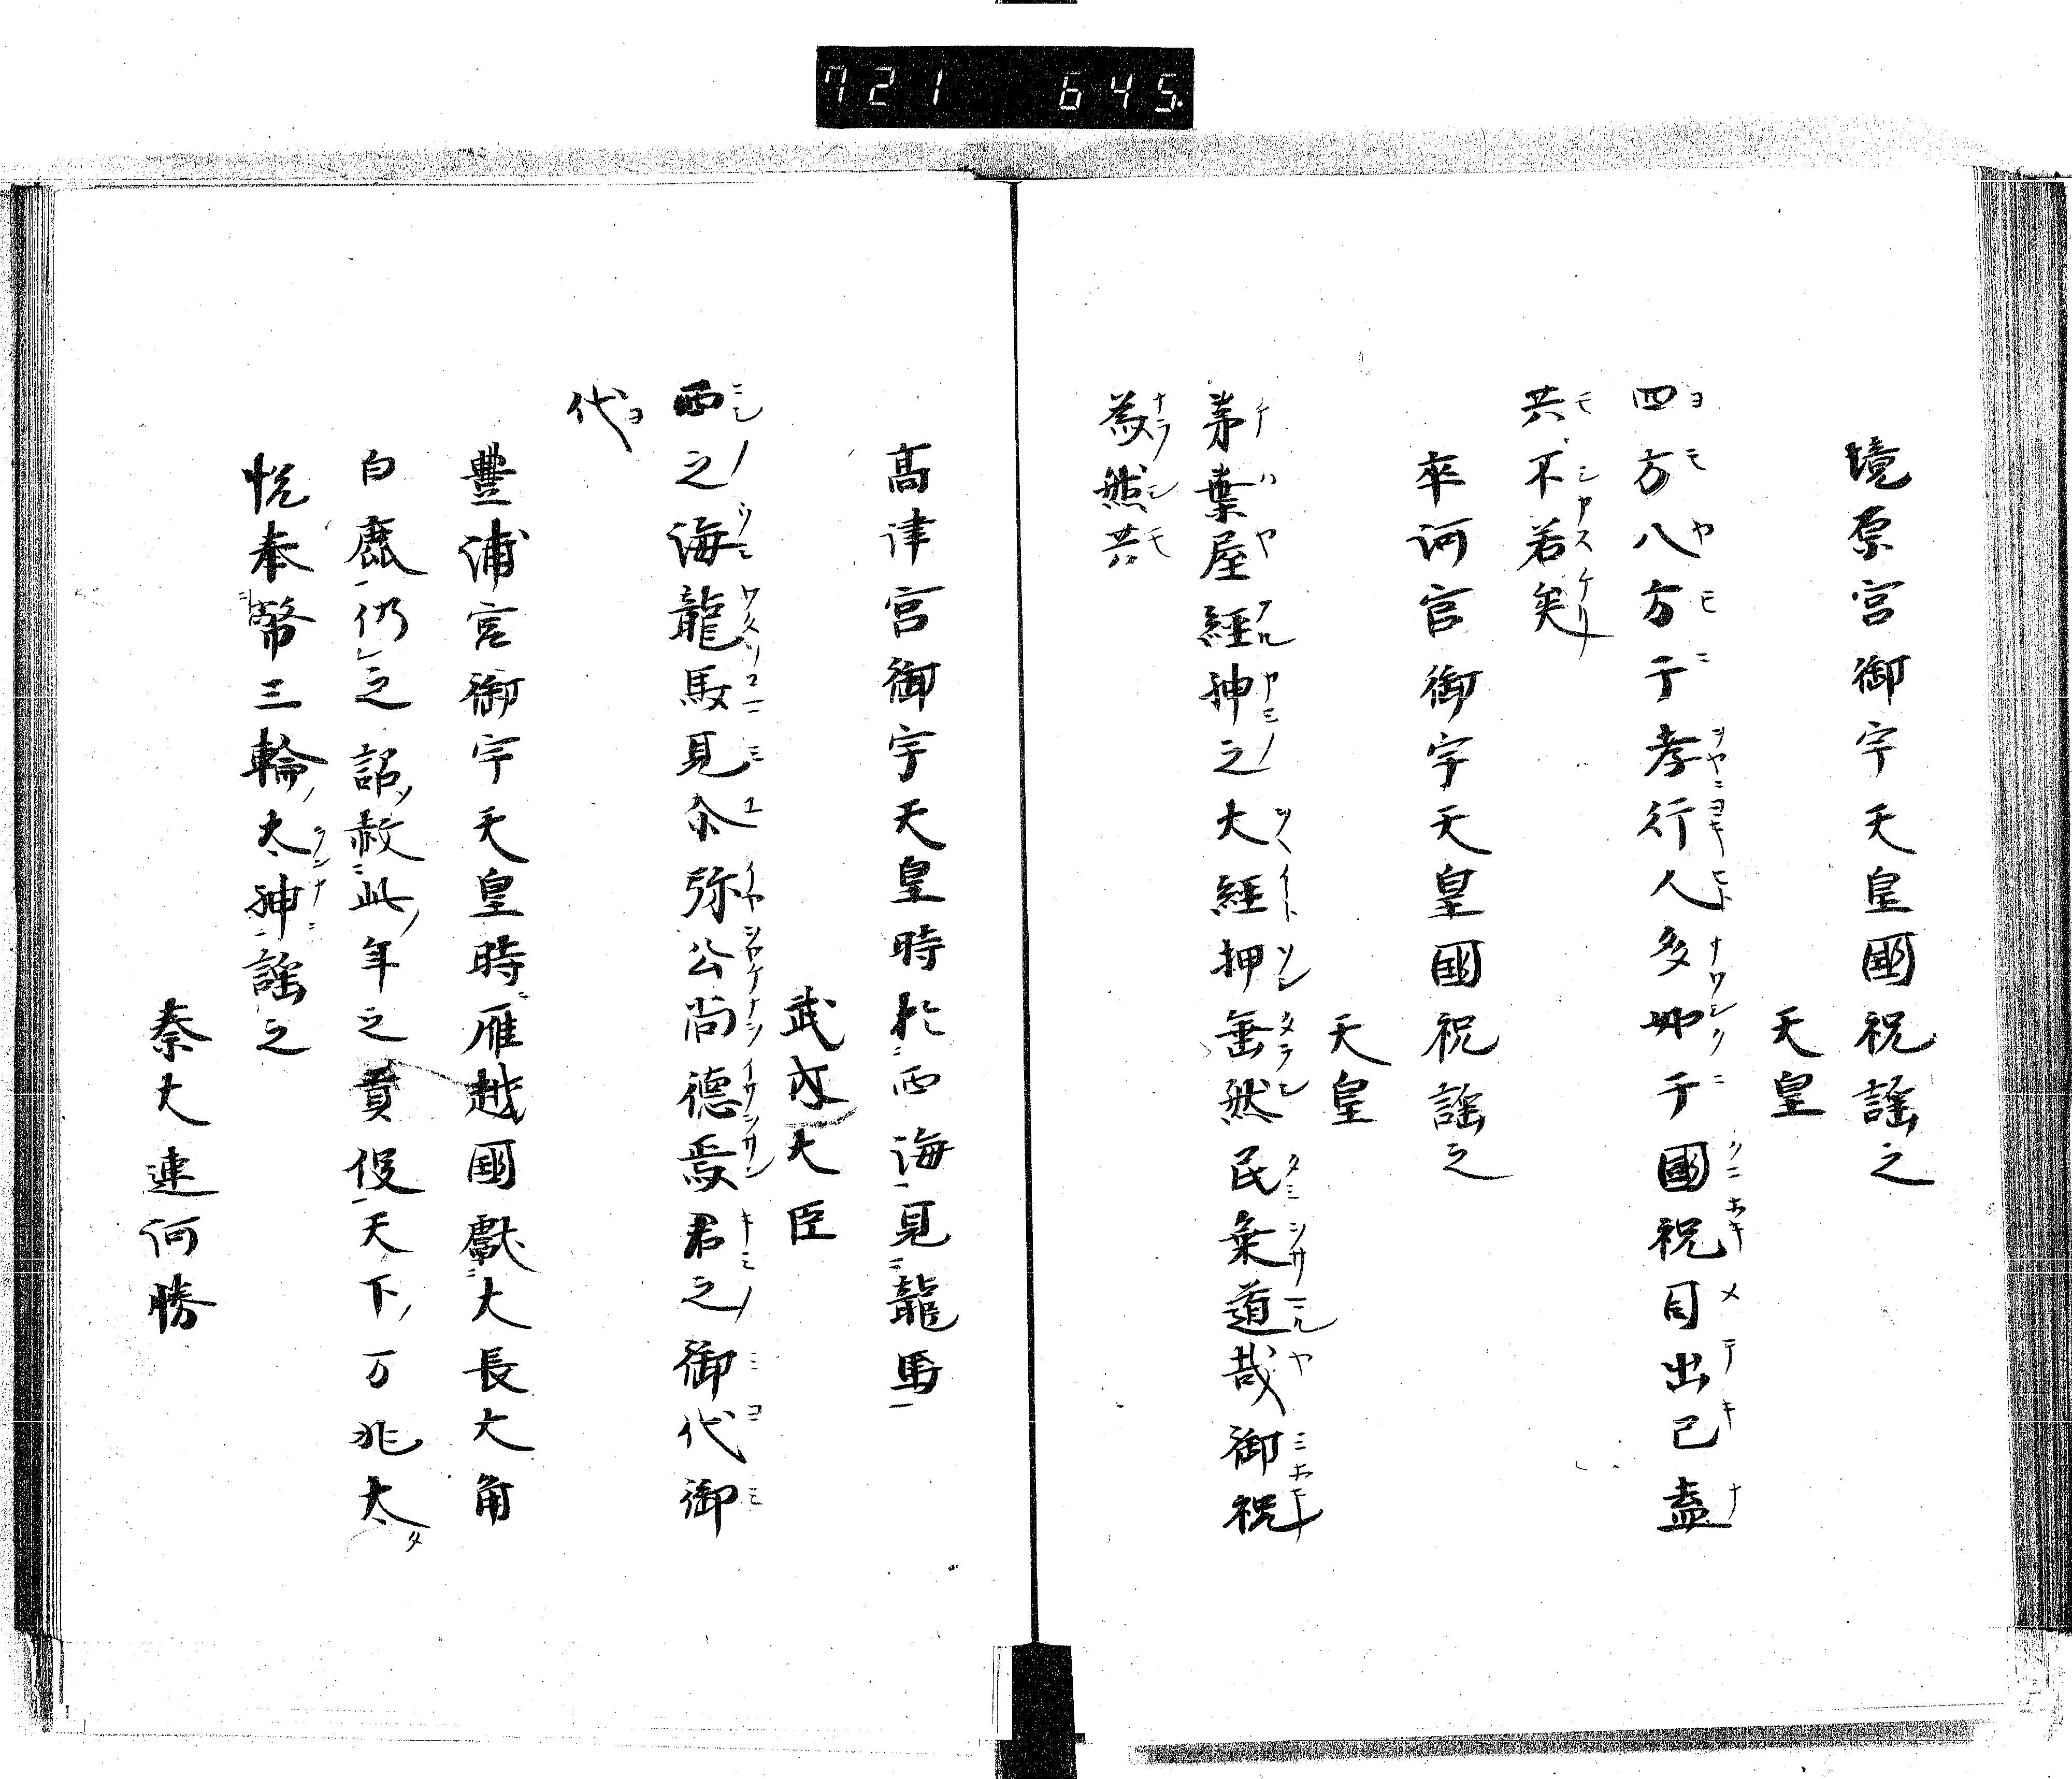 721 645.
境原宮御宇天皇國祝謡之
天皇
四方八方于孝行人多如于國祝目出已盡
共不若矣
率河宮御宇天皇國祝謡之
天皇
茅葉屋經神之大經押垂然民棄道哉御祝
為然共
高津宮御宇天皇時於西海見龍馬
武内大臣
西之海龍馬見尒弥公尚德焉君之御代御
代
豐浦宮御宇天皇時雁越國獻大長大角
白鹿仍之詔赦此年之貢役天下万兆太
悦奉幣三輪太神謡之
秦大連何勝